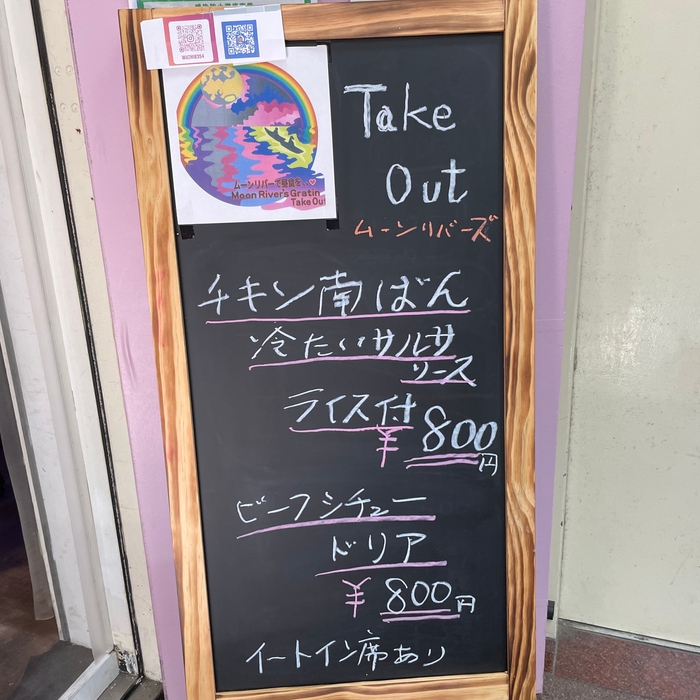 WACHI8354
ムーンリバーで昼食を..♡
Moon River's Gratin
Take Out
Take
Out
ムーンリバーズ
チキン南ばん
冷たいサルサ
ソース
ライス付
¥800円
ビーフシチュー
ドリア
¥800円
イートイン席あり